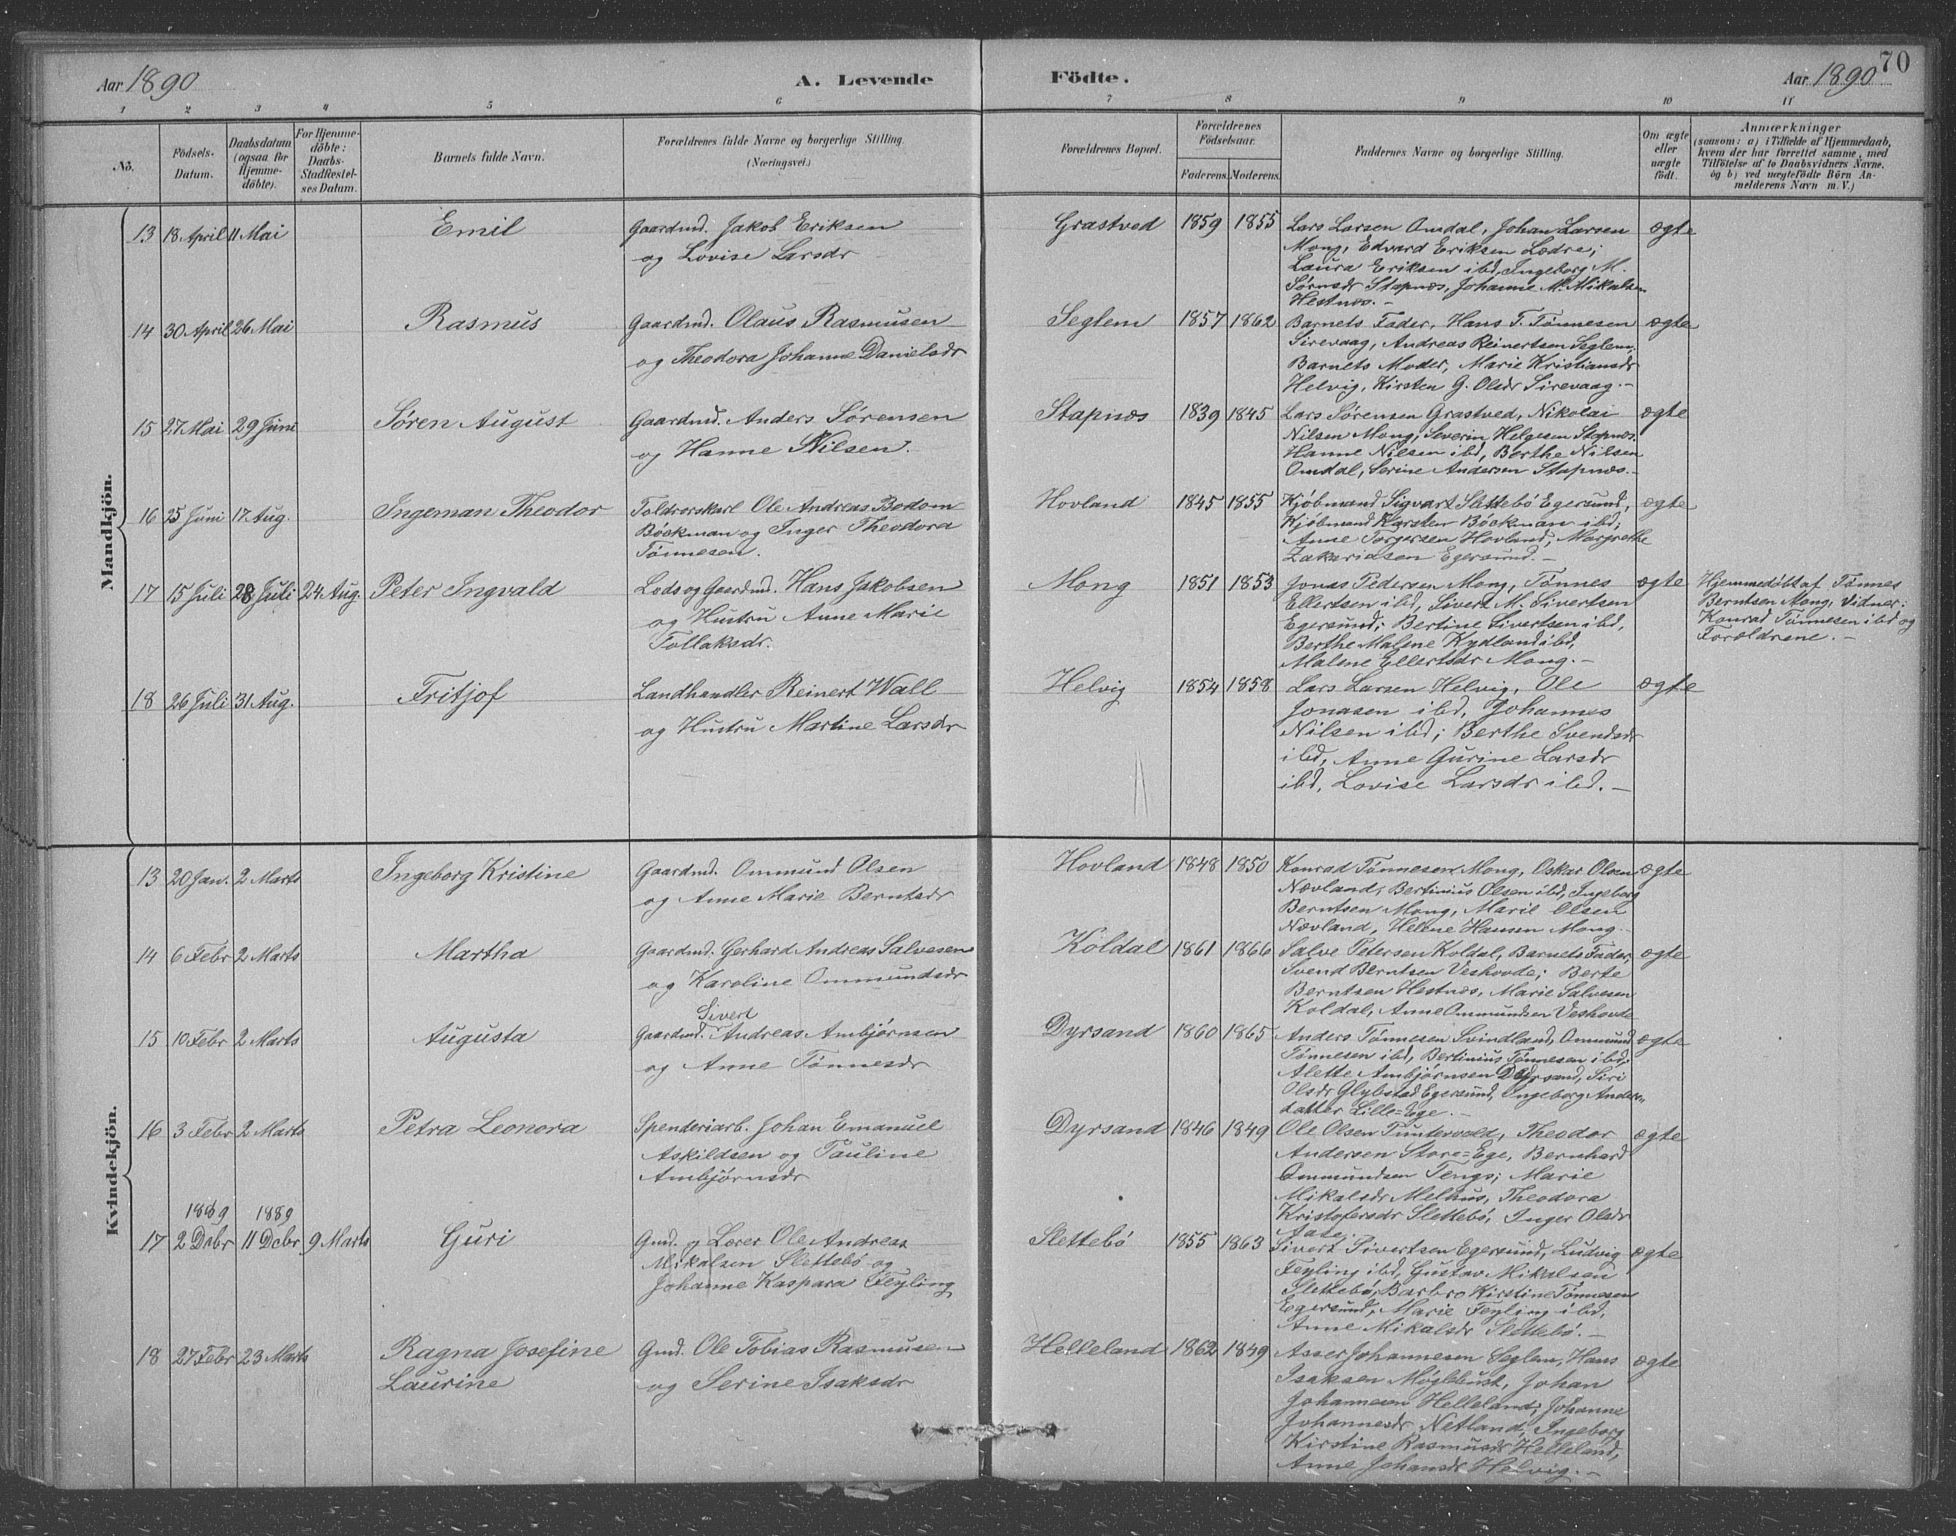 70
Aar 1890
A. Levende
Födte.
Aar 1890
1 2 3 4 5 6 7 8 9 10 11
No.
Födsels-
Datum.
Daabsdatum
(ogsaa for
Hjemme-
döbte).
For Hjemme-
döbte:
Daabs-
Stadfæstel-
ses Datum.
Barnets fulde Navn.
Forældrenes fulde Navne og borgerlige Stilling.
(Næringsvei.)
Forældrenes Bopæl.
Forældrenes
Födselsaar.
Faderens. Moderens.
Faddernes Navne og borgerlige Stilling.
Om ægte
eller
uægte
födt.
Anmærkninger
(saasom: a) i Tilfælde af Hjemmedaab,
hvem der har forrettet samme, med
Tilföielse af to Daabsvidners Navne.
og b) ved uægtefödte Börn An-
melderens Navn m. V.)
Mandkjön.
13 18 April 11 Mai Emil
Gaardmd. Jakob Eriksen
og Lovise Larsdr
Grastved 1859 1855
Lars Larsen Omdal, Johan Larsen
Mong, Edvard Eriksen Lædre;
Laura Eriksen ibd, Ingeborg M.
Sørnsdr Stapnæs, Johanne M. Mikalsen
Hestnæs.–
ægte
14 30 April 26 Mai Rasmus
Gaardmd. Olaus Rasmusen
og Theodora Johanne Danielsdr
Seglem 1857 1862
Barnets Fader, Hans T. Tønnesen
Sirevaag, Andreas Reinertsen Seglem;
Barnets Moder, Marie Kristiansdr
Helvig, Kirsten G. Olsdr Sirevaag.–
ægte
15 27 Mai 29 Juni Søren August
Gaardmd. Anders Sørensen
og Hanne Nilsen.
Stapnæs 1839 1845
Lars Sørensen Grastved, Nikolai
Nilsen Mong, Severin Helgesen Stapnæs.
Hanne Nilsen ibd, Berthe Nilsen
Omdal, Serine Andersen Stapnæs.–
ægte
16 25 Juni 17 Aug. Ingeman Theodor
Toldrorskarl Ole Andreas Bodom
Böckman og Inger Theodora
Tønnesen.
Hovland 1845 1855
Kjøbmand Sigvart Slettebö Egersund,
Kjøbmand Karsten Böckman ibd;
Anne Torgersen Hovland, Margrethe
Zakariasen Egersund.–
ægte
17 15 Juli 28 Juli 24 Aug. Peter Ingvald
Lods og Gaardmd. Hans Jakobsen
og Hustru Anne Marie
Tollaksdr.
Mong 1851 1853
Jonas Pedersen Mong, Tønnes
Ellertsen ibd, Sivert M. Sivertsen
Egersund; Bertine Sivertsen ibd,
Berthe Malene Kydland ibd,
Malene Ellertsdr Mong.–
ægte
Hjemmedöbt af Tønnes
Berntsen Mong, Vidner:
Konrad Tønnesen ibd og
Forældrene.–
18 26 Juli 31 Aug. Fritjof
Landhandler Reinert Wall
og Hustru Martine Larsdr
Helvig 1854 1858
Lars Larsen Helvig, Ole
Jonasen ibd, Johannes
Nilsen ibd; Berthe Svendsdr
ibd, Anne Gurine Larsdr
ibd, Lovise Larsdr ibd.–
ægte
Kvindekjön.
13 20 Jan. 2 Marts Ingeborg Kristine
Gaardmd. Ommund Olsen
og Anne Marie Berntsdr
Hovland 1848 1850
Konrad Tønnesen Mong, Oskar Olsen
Nævland, Bertinius Olsen ibd, Ingeborg
Berntsen Mong, Marie Olsen
Nævland, Helene Hansen Mong.
ægte
14 6 Febr 2 Marts Martha
Gaardmd. Gerhard Andreas Salvesen
og Karoline Ommundsdr
Koldal 1861 1866
Salve Petersen Koldal, Barnets Fader,
Svend Berntsen Veshovde; Berte
Berntsen Hestnæs, Marie Salvesen
Koldal, Anne Ommundsen Veshovde
ægte
15 10 Febr 2 Marts Augusta
Sivert
Gaardmd. Andreas Ambjørnsen
og Anne Tønnesdr
Dyrsand 1860 1865
Anders Tønnesen Svindland, Ommund
Tønnesen ibd, Bertinius Tønnesen ibd,
Alette Ambjørnsen Dyrsand, Siri
Olsdr Glybstad Egersund, Ingeborg Anders-
datter Lille-Ege.–
ægte
16 3 Febr 2 Marts Petra Leonora
Spenderiarb. Johan Emanuel
Askildsen og Pauline
Ambjørnsdr
Dyrsand 1846 1849
Ole Olsen Tuntervold, Theodor
Andersen Store-Ege, Bernhard
Ommundsen Tengs; Marie
Mikalsdr Melhus, Theodora
Kristofersdr Slettebö, Inger Olsdr
Aase.
ægte
1889 1889
17 2 Debr 11 Debr 9 Marts Guri
Gmd. og Lærer Ole Andreas
Mikalsen Slettebø og
Johanne Kaspara Feyling
Slettebö 1855 1863
Sivert Sivertsen Egersund, Ludvig
Feyling ibd, Gustav Mikalsen
Slettebö, Barbro Kirstine Tønnesen
Egersund, Marie Feyling ibd,
Anne Mikalsdr Slettebö.–
ægte
18 27 Febr 23 Marts Ragna Josefine
Laurine
Gmd. Ole Tobias Rasmusen
og Serine Isaksdr
Helleland 1862 1849
Asser Johannesen Seglem, Hans
Isaksen Møglebust, Johan
Johannesen Helleland; Johanne
Johannesdr Netland, Ingeborg
Kirstine Rasmusdr Helleland,
Anne Johansdr Helvig.–
ægte